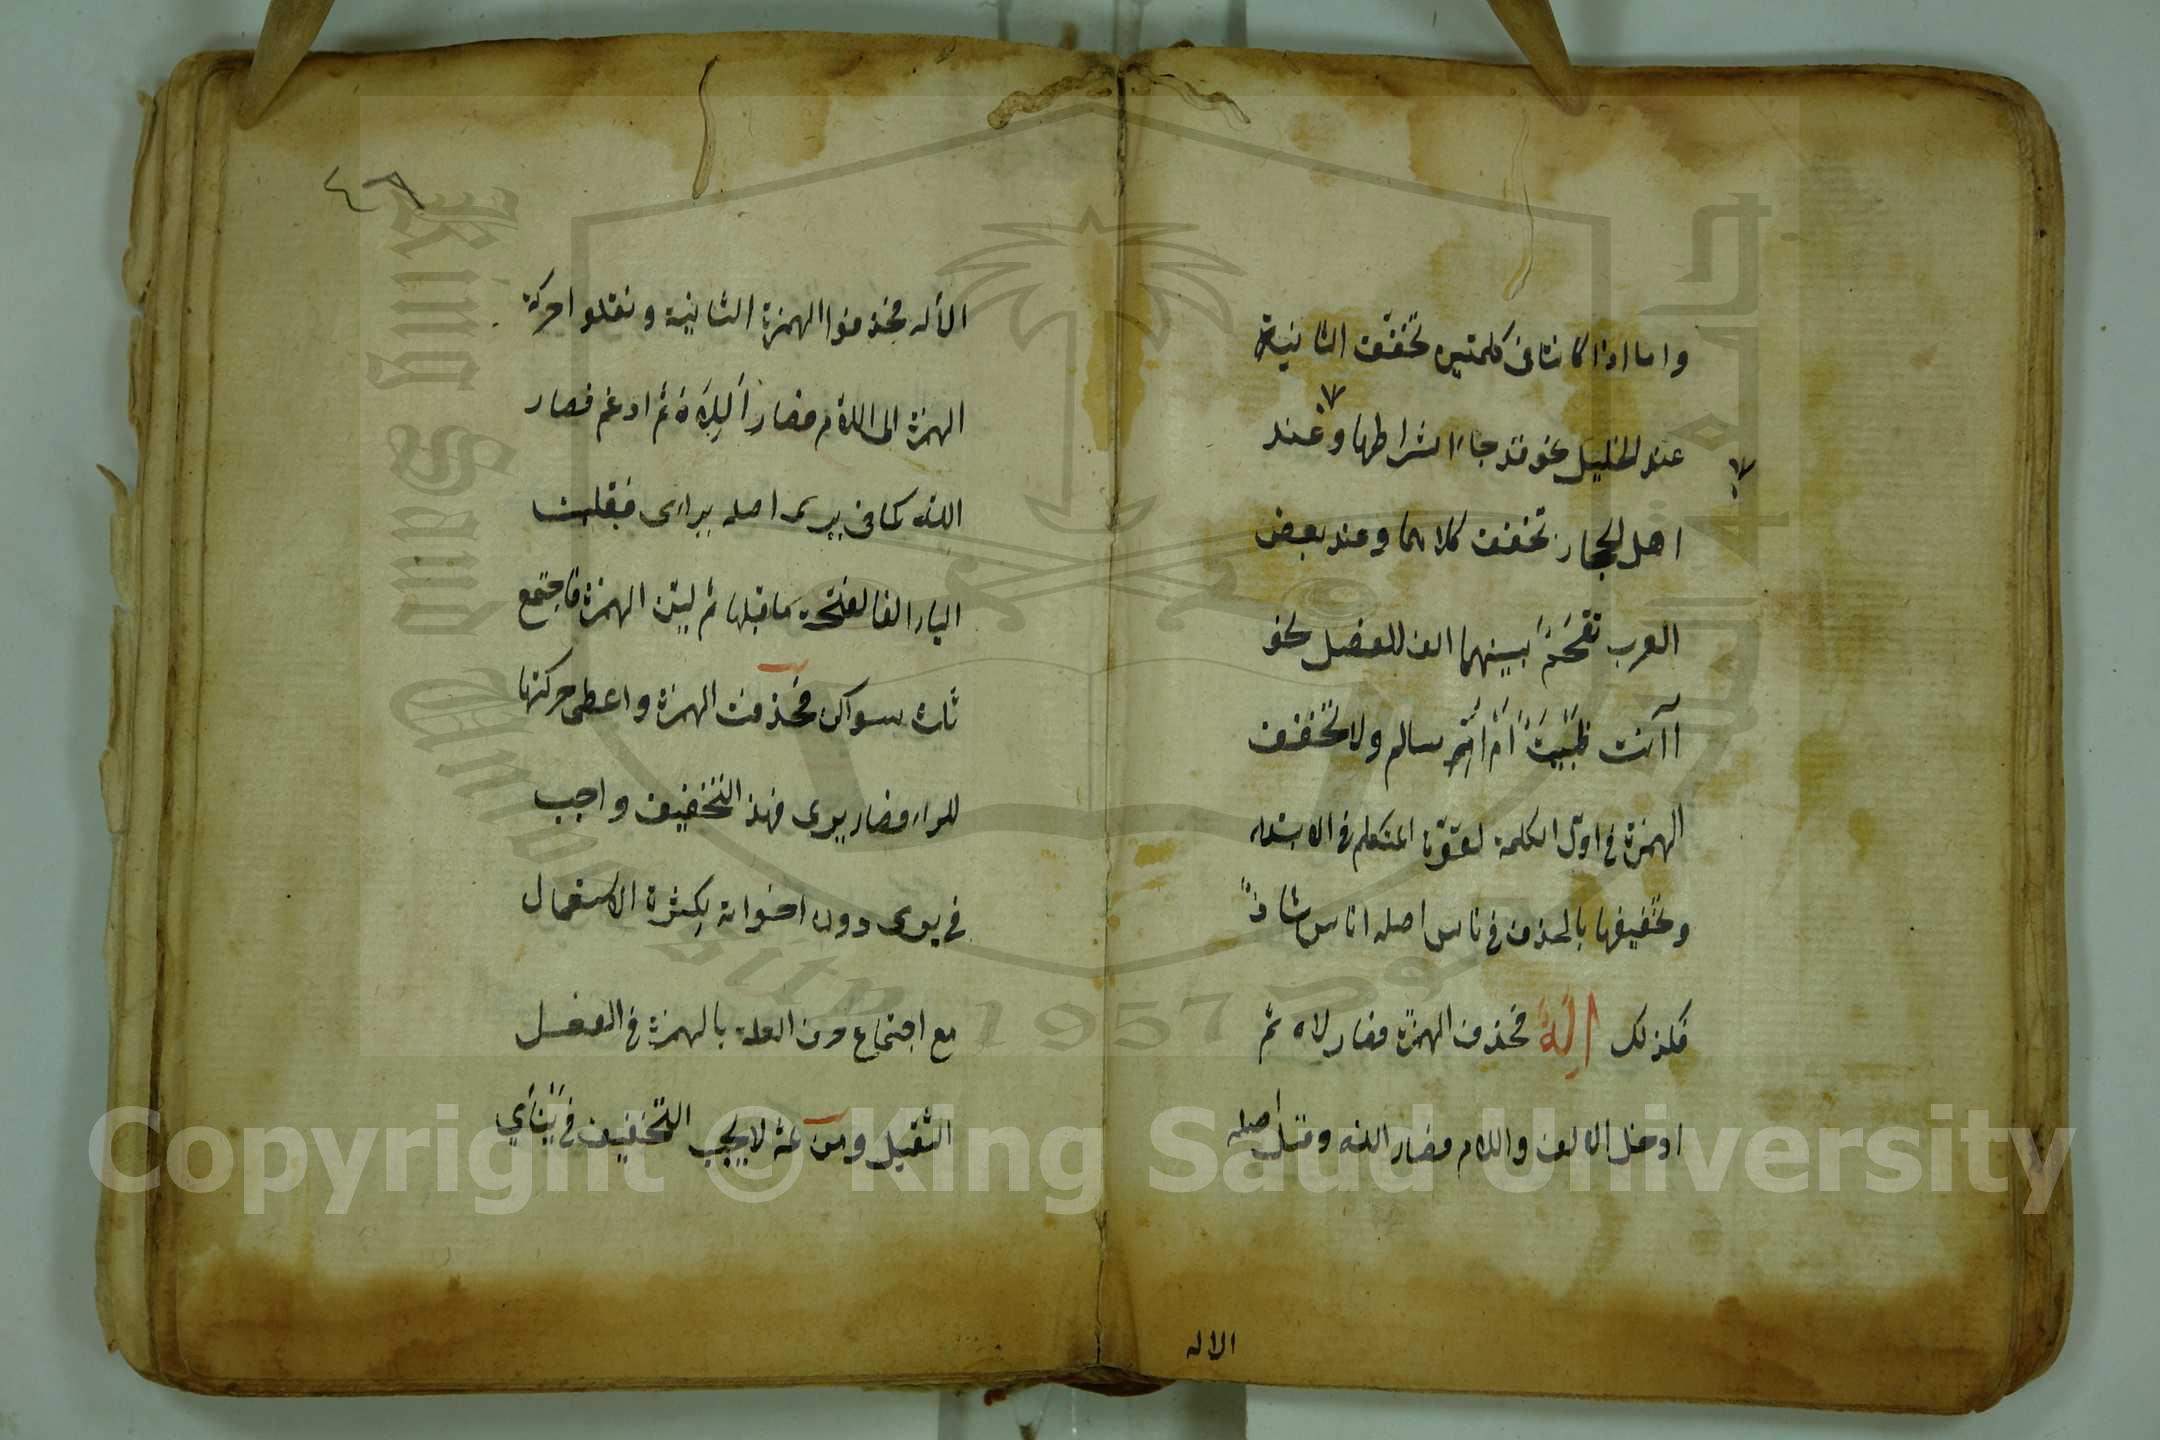 واما اذا كانتا فى كلمتين تخفف الثانية
عند الخليل نحو قد جاء اشراطها وعند
اهل الحجاز تخفف كلاهما وعند بعض
العرب تقحم بينهما الف للفصل نحو
أاأنت ظبية أم أم سالم ولا تخفف
الهمزة فى اول الكلمة لقوة المتكلم فى الابتداء
وتخفيفها بالحذف فى ناس اصله اناس شاذ
فكذلك اله فحذف الهمزة فصار لاه ثم
ادخل الالف واللام فصار الله وقيل اصله
الاله
٤٦
الأله فحذفوا الهمزة الثانية ونقلوا حركة
الهمزة الى اللام فصار أللاه ثم ادغم فصار
الله كما فى يرى اصله يرأى فقلبت
الياء الفا لفتحة ما قبلها ثم لين الهمزة فاجتمع
ثلث سواكن فحذفت الهمزة واعطى حركتها
للراء فصار يرى فهذ التخفيف واجب
فى يرى دون اخواته لكثرة الاستعمال
مع اجتماع حرف العلة بالهمزة فى الفعل
الثقيل ومن ثمة لا يجب التخفيف فى ينأي
King Saud University
1957
Copyright © King Saud University